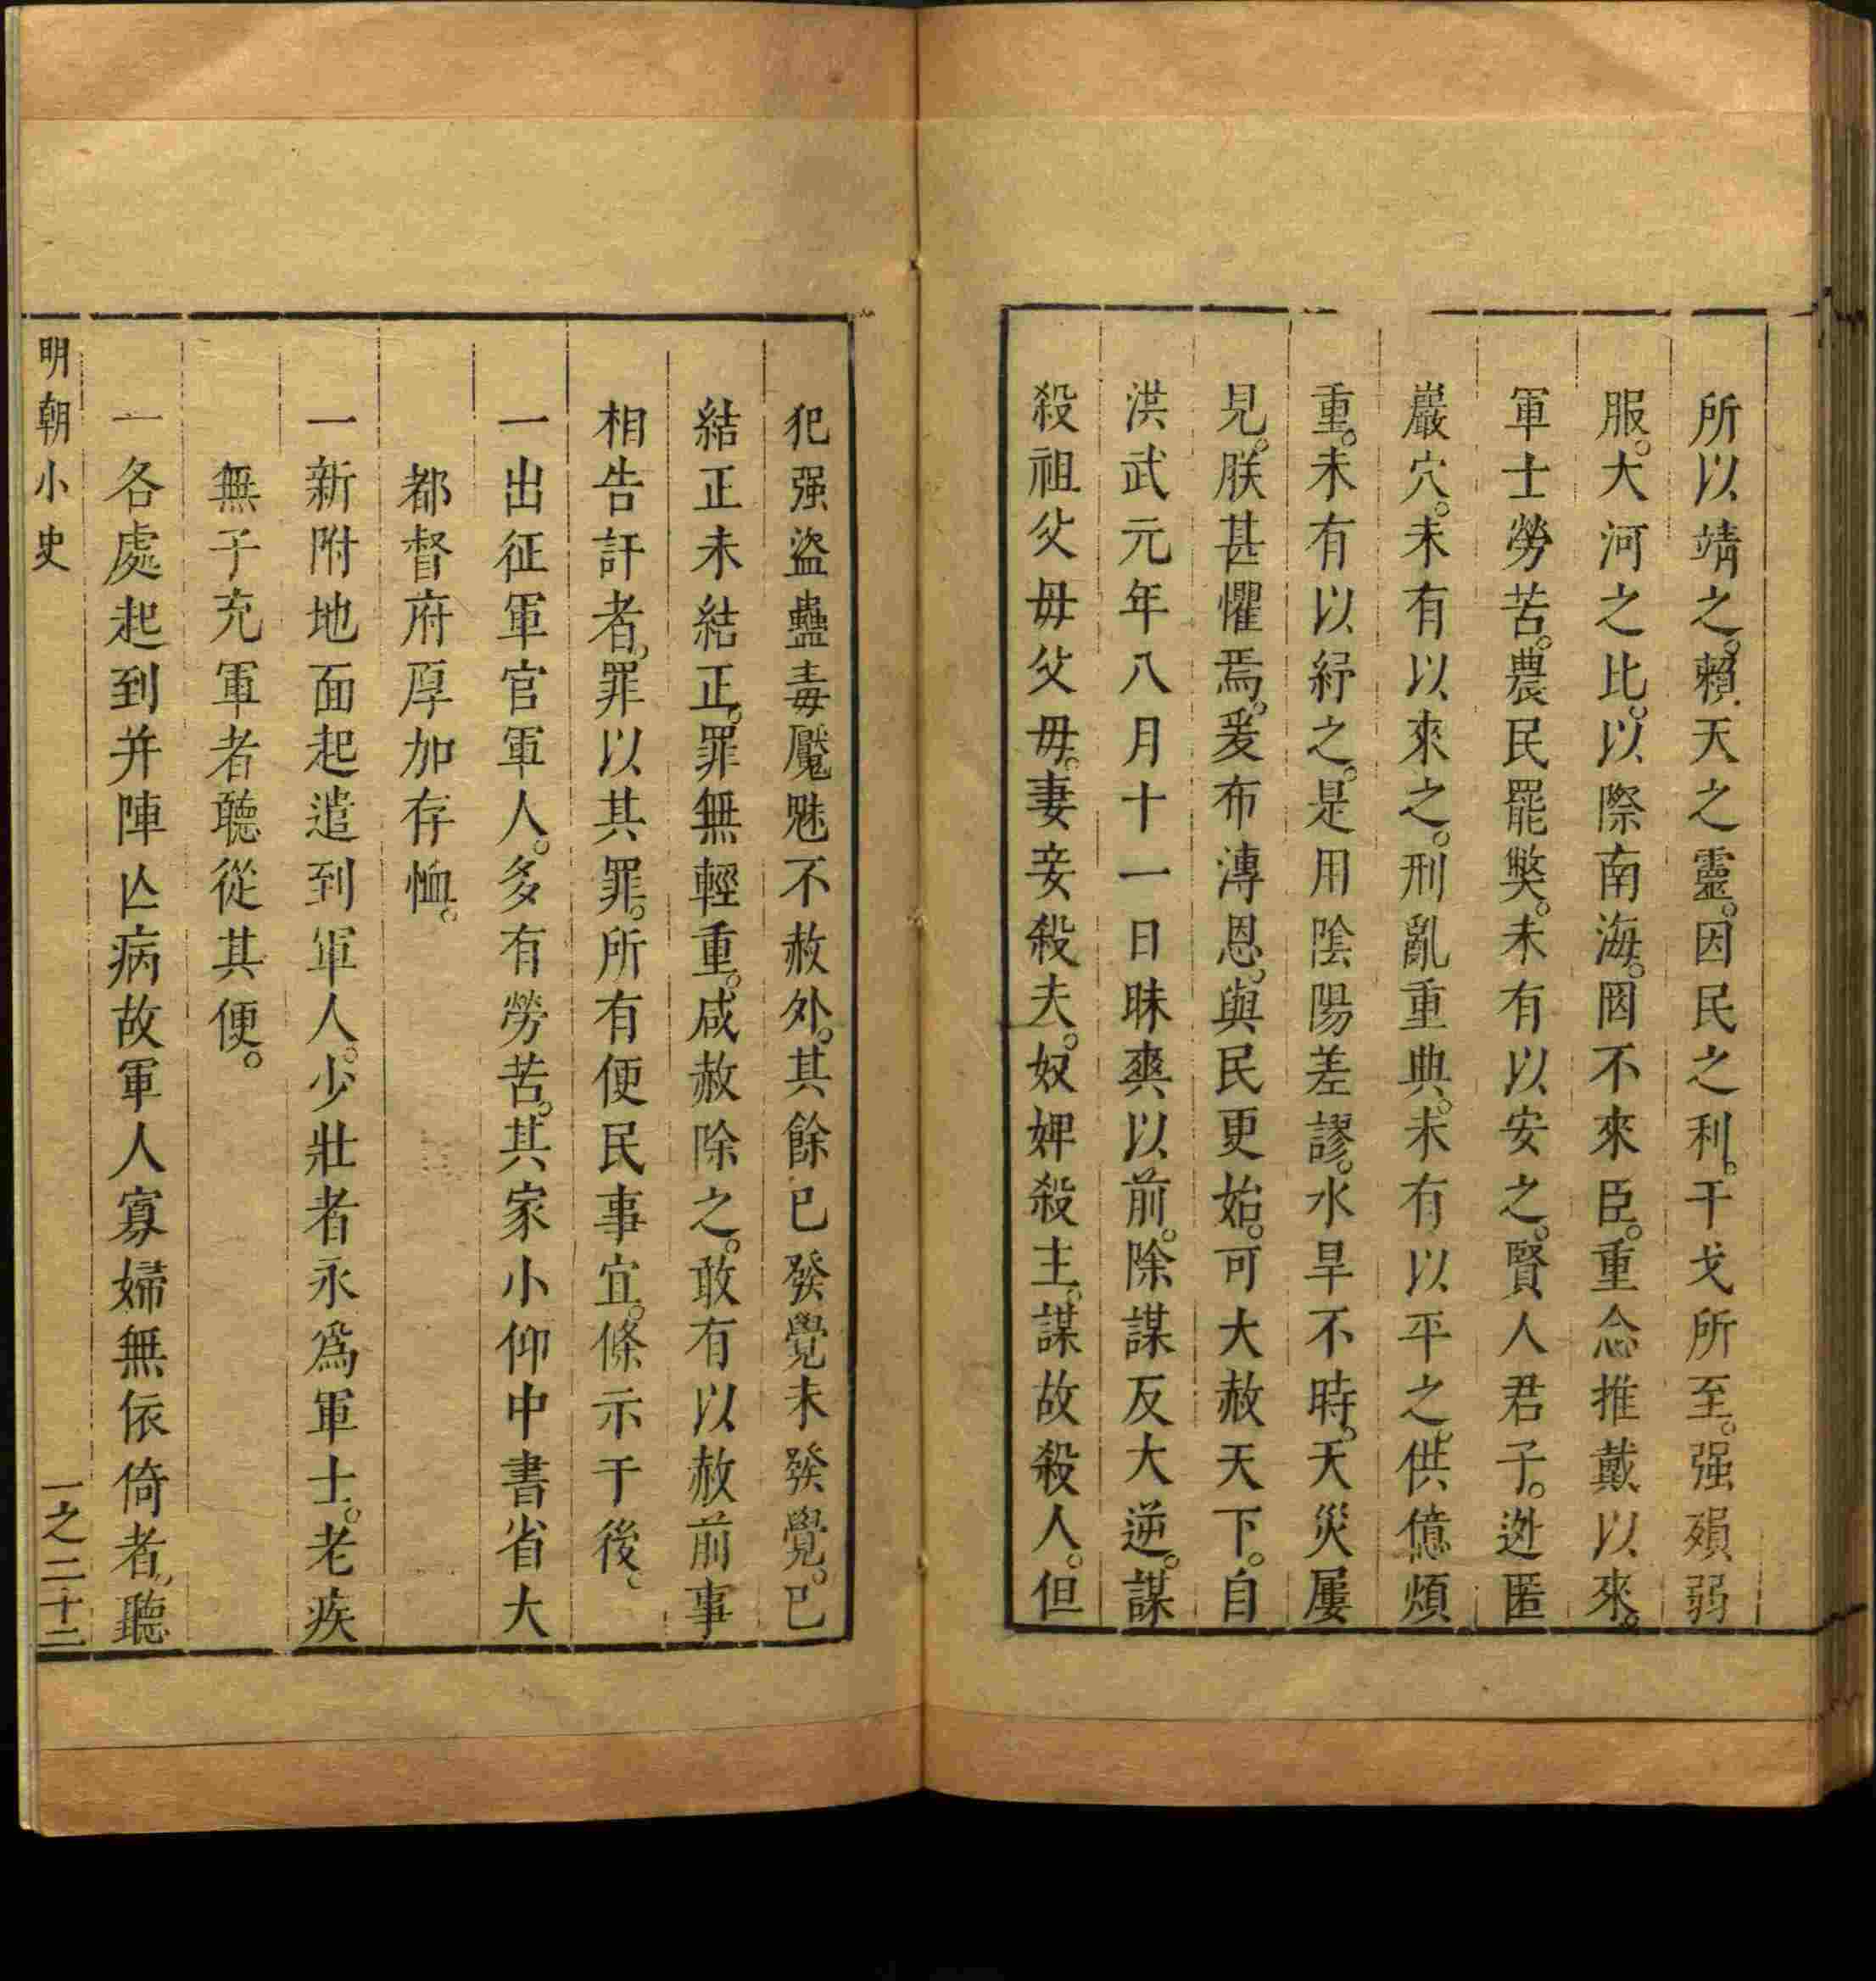 所以靖之。賴天之靈。因民之利。干戈所至。强殞弱
服。大河之比。以際南海。罔不來臣。重念推戴以來。
軍士勞苦。農民罷獘。未有以安之。賢人君子。迯匿
巖穴。未有以來之。刑亂重典。未有以平之。供億煩
重。未有以紓之。是用陰陽差謬。水旱不時。天災屢
見。朕甚懼焉。爰布溥恩。與民更始。可大赦天下。自
洪武元年八月十一日昧爽以前。除謀反大逆。謀
殺祖父毋父毋。妻妾殺夫。奴婢殺主。謀故殺人。但
犯强盜蠱毒魘魅不赦外。其餘已發覺未發覺。已
結正未結正。罪無輕重。咸赦除之。敢有以赦前事
相告訐者。罪以其罪。所有便民事宜。條示于後、
一出征軍官軍人。多有勞苦。其家小仰中書省大
都督府厚加存恤。
一新附地面起遣到軍人。少壯者永爲軍士。老疾
無子充軍者聽從其便。
一各處起到并陣亾病故軍人寡婦無依倚者、聽
明朝小史
一之二十二